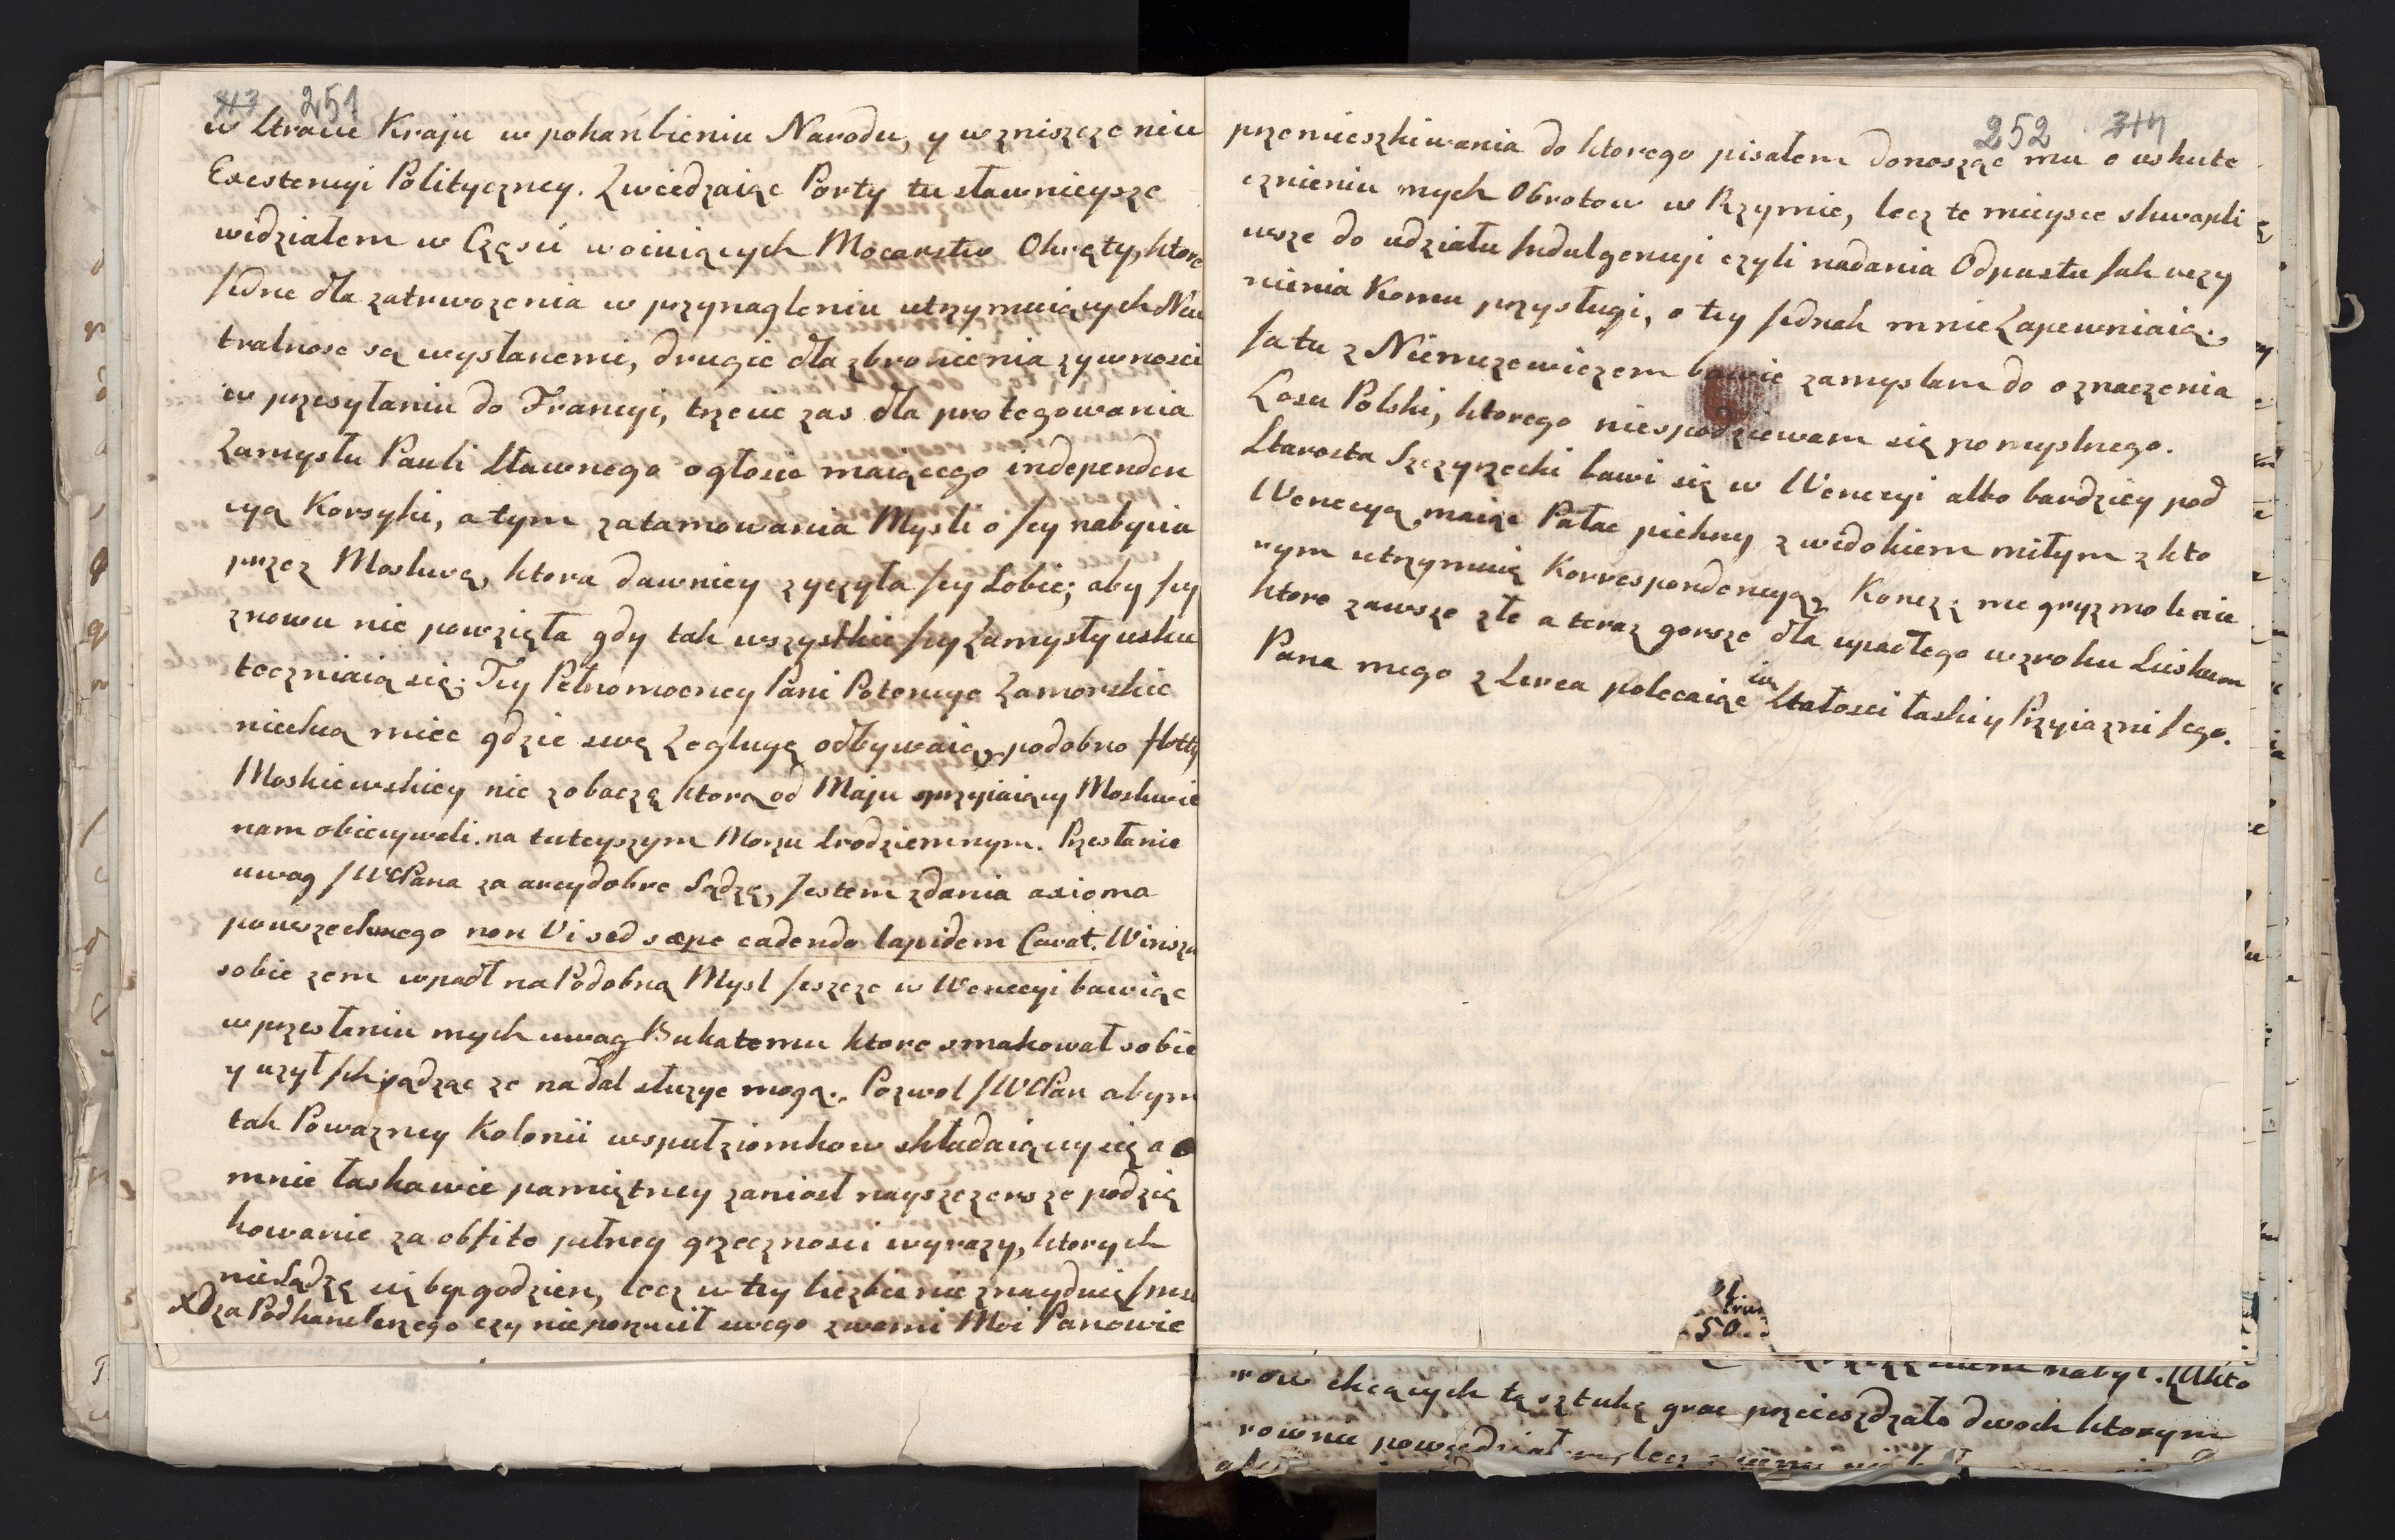 343 251
w Utracie Kraju w pohańbieniu Narodu, y w zniszczeniu
Exestencyi Polityczney. Zwiedzaiąc Porty tu sławnieysze
widziałem w Części woiuiących Mocarstw Okręty, ktore
Jedne dla zatrwozenia w przynagleniu utrzymuiących Neu
tralnosc są wysłanemi, drugie dla zbronienia zywnosci
w przesyłaniu do Francyi, trzecie zas dla protegowania
Zamysłu Pauli Sławnego ogłosic maiącego independen
cyą Korsyki, a tym zatamowania Mysli o Jey nabycia
przez Moskwę, ktora dawniey zyczyła Jey Sobie; aby Jey
znowu nie powzięła gdy tak wszystkie Jey Zamysły usku
teczniaią się; Tey Pełnomocney Pani Potencye Zamorskie
niechcą miec gdzie swą Zeglugę odbywaią, podobno flotty
Moskiewskiey nie zobaczą ktorą od Maju sprzyiaiący Moskwie
nam obiecywali na tuteyszym Morzu Srodziemnym. Przesłanie
uwag JWWPana za arcydobre Sądzę, Jestem zdania axioma
powszechnego non Vi sed sæpe cadendo lapidem Cavat. Winszu
sobie zem wpadł na Podobną Mysl Jeszcze w Wenecyi bawiąc
w przesłaniu mych uwag Bukatemu ktore smakował sobie
y uzył Ich sądząc ze nadal słuzyc mogą. Pozwol JWWPan abym
tak Powazney Kolonii wspułziomkow składaiącey się a o
mnie łaskawie pamiętney zaniosł nayszczersze podzię
kowanie za obfite pełney grzecznosci wyrazy, ktorych
nie Sądzę się byc godzien, lecz w tey liczbie nie znayduię
Xdza Podkanclerzego czy nie porzucił swego z wami Moi Panowie
252 344
przemieszkiwania do ktorego pisałem donosząc mu o uskute
cznieniu mych Obrotow w Rzymie, lecz te mieysce skwapli
wsze do udziału Indulgencyi czyli nadania Odpustu Jak uczy
nienia Komu przysługi, o tey Jednak mnie Zapewniaią.
Ja tu z Niemczewiczem bawic zamyslam do oznaczenia
Losu Polski, ktorego niespodziewam się pomyslnego.
Starosta Szczyrzecki bawi się w Wenecyi albo bardziey pod
Wenecyą, maiąc Pałac piekny z widokiem miłym z kto
rym utrzymuię Korrespondencyą, Konczę me gryzmolenie
ktore zawsze złe a teraz gorsze dla upadłego wzroku Sciskam
Pana mego z Serca polecaiąc się Stałosci łaski y Przyiazni Jego.
50.
row chcących tę sztukę grac przeieszdzało dwoch ktorym